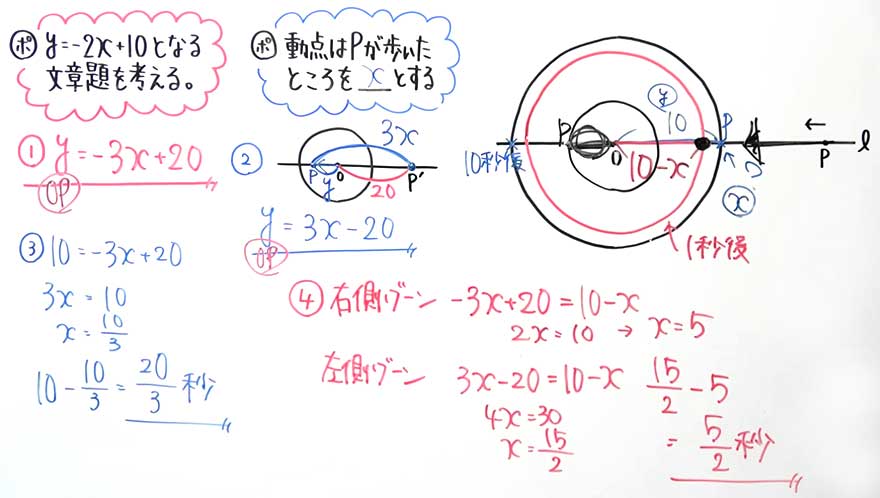 ポ y=-2x+10となる
文章題を考える。
① y=-3x+20
OP
ポ 動点はPが歩いた
ところを x とする
② 3x
P y O 20 P'
y=3x-20
OP
③ 10=-3x+20
3x=10
x=10/3
10-10/3=20/3 秒
y
10
P O 10-x P ← l
P
10秒後
x
1秒後
④ 右側ゾーン -3x+20=10-x
2x=10 → x=5
左側ゾーン 3x-20=10-x
4x=30
x=15/2
15/2-5
=5/2 秒